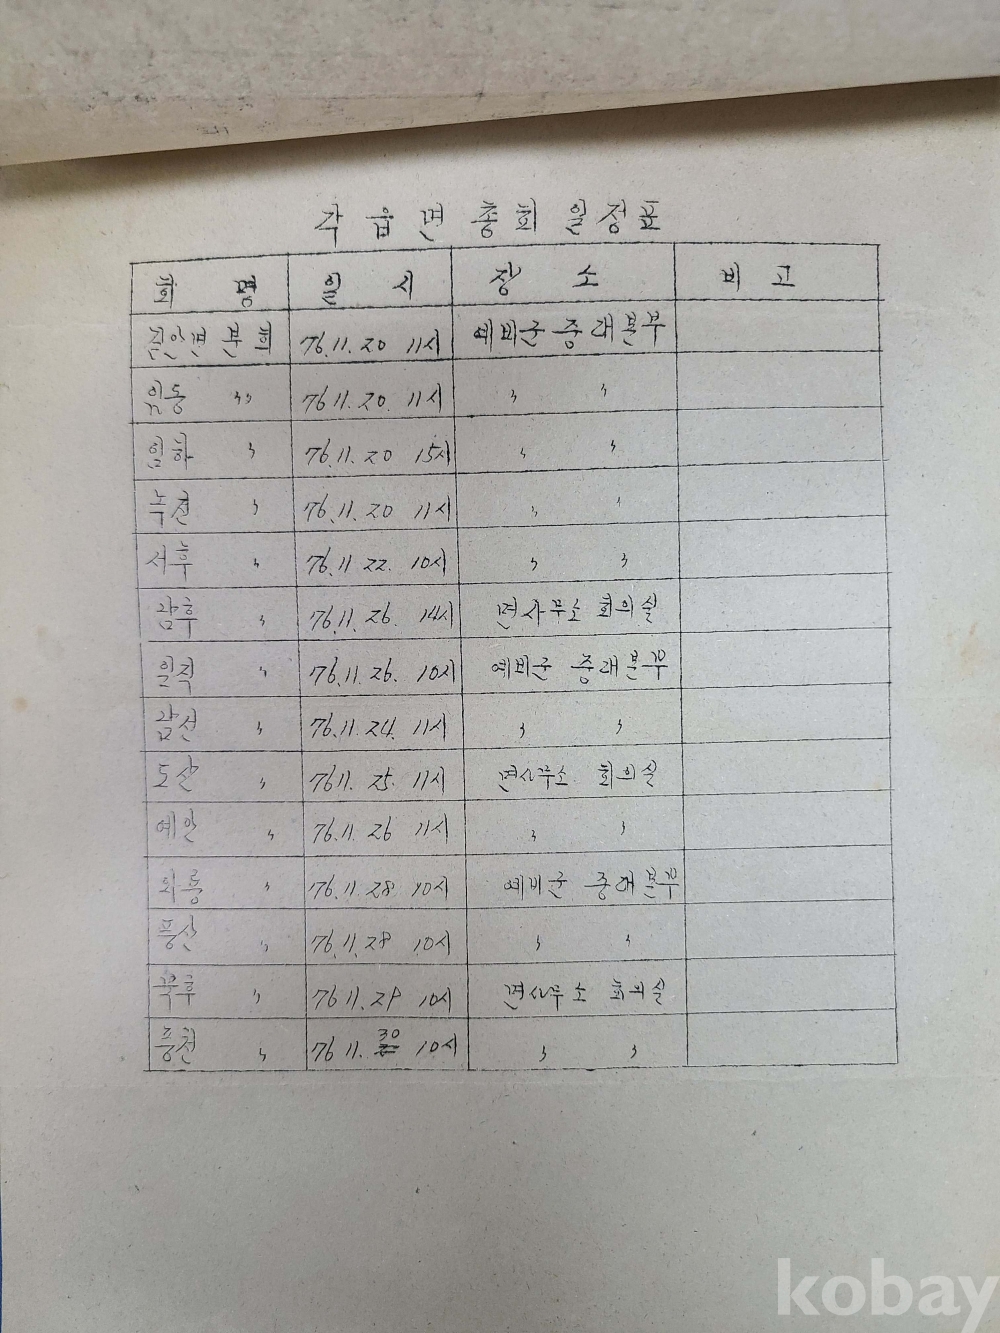 각 읍 면 총회 일정표
회 명 일 시 장 소 비 고
길안면 분회 76.11.20 11시 예비군 중대본부
임동 〃 76.11.20. 11시 〃 〃
임하 〃 76.11.20 15시 〃 〃
녹전 〃 76.11.20 11시 〃 〃
서후 〃 76.11.22. 10시 〃 〃
남후 〃 76.11.26. 14시 면사무소 회의실
일직 〃 76.11.26. 10시 예비군 중대본부
남선 〃 76.11.24. 11시 〃 〃
도산 〃 76.11.25. 11시 면사무소 회의실
예안 〃 76.11.26 11시 〃 〃
와룡 〃 76.11.28 10시 예비군 중대본부
풍산 〃 76.11.28 10시 〃 〃
북후 〃 76.11.29 10시 면사무소 회의실
풍천 〃 76.11.30 10시 〃 〃
kobay